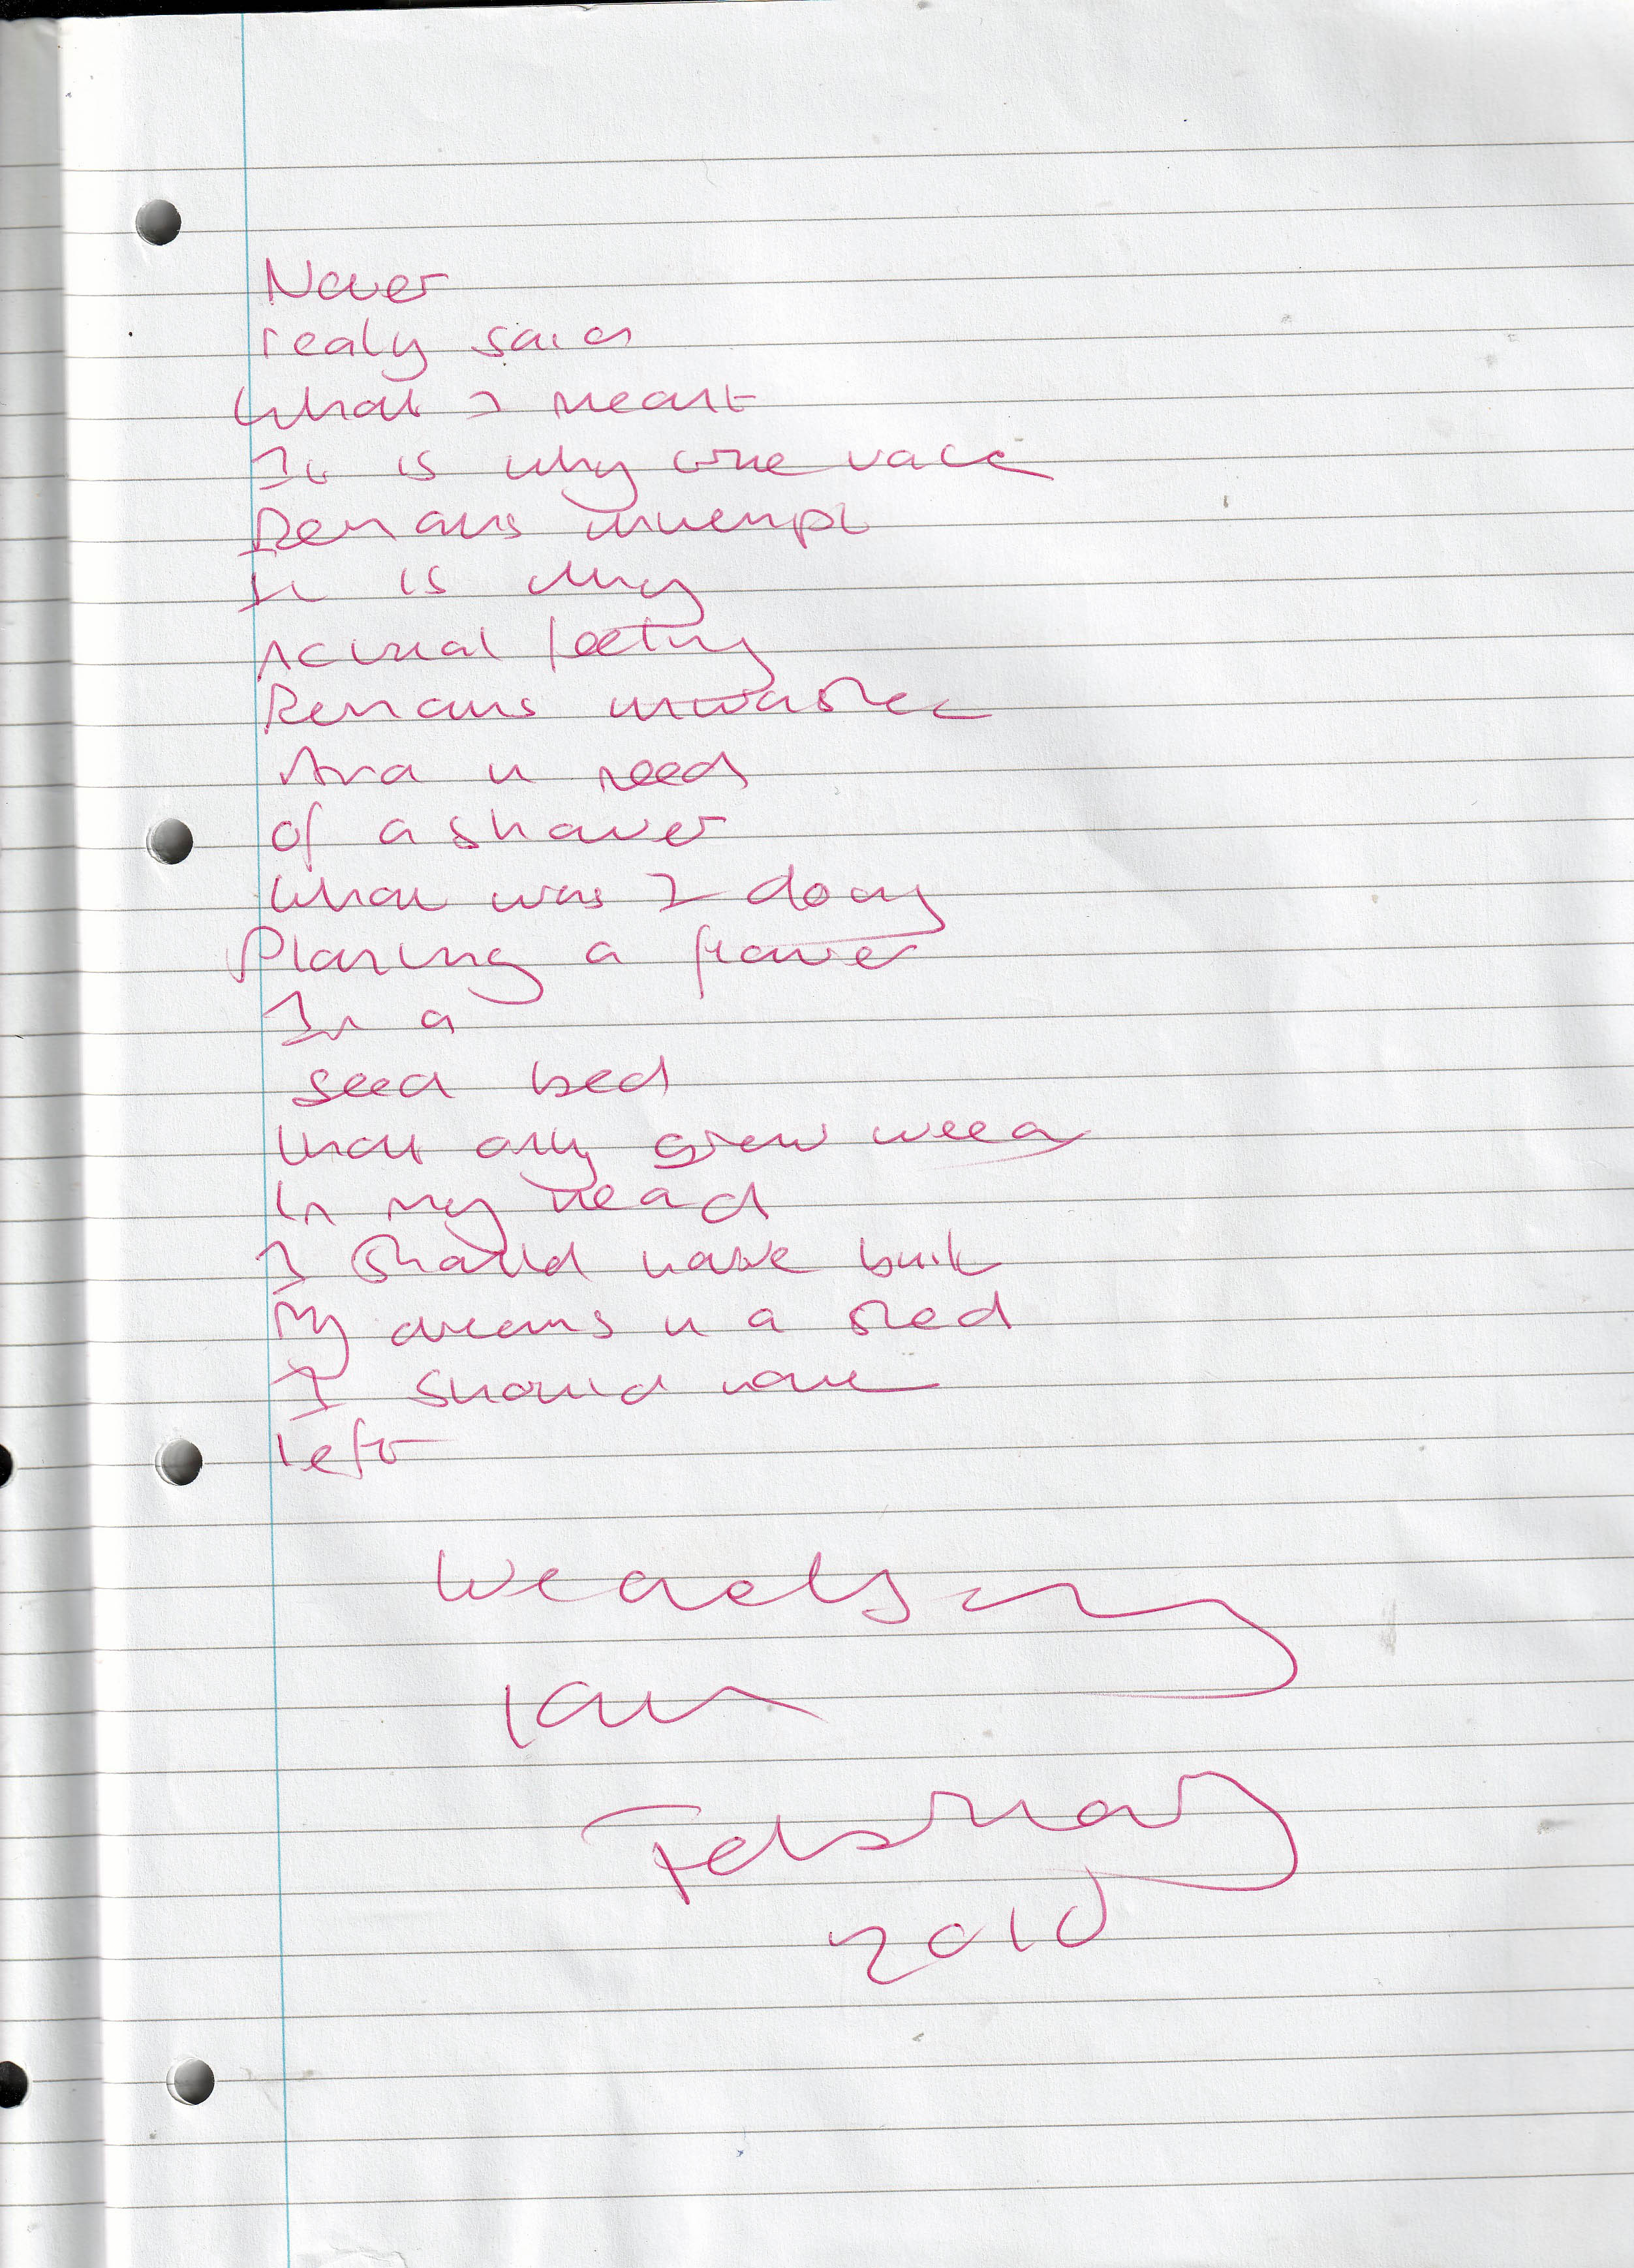 Never
realy said
What I meant
It is why the
Remains
It is why
Actual feeling
Remains unwashed
And in need
of a shower
What was I doing
Planing a flower
In a
seed bed
that only grew weed
In my head
I should have built
My dreams in a shed
I should have
left
Wednesday
10am
February
2010